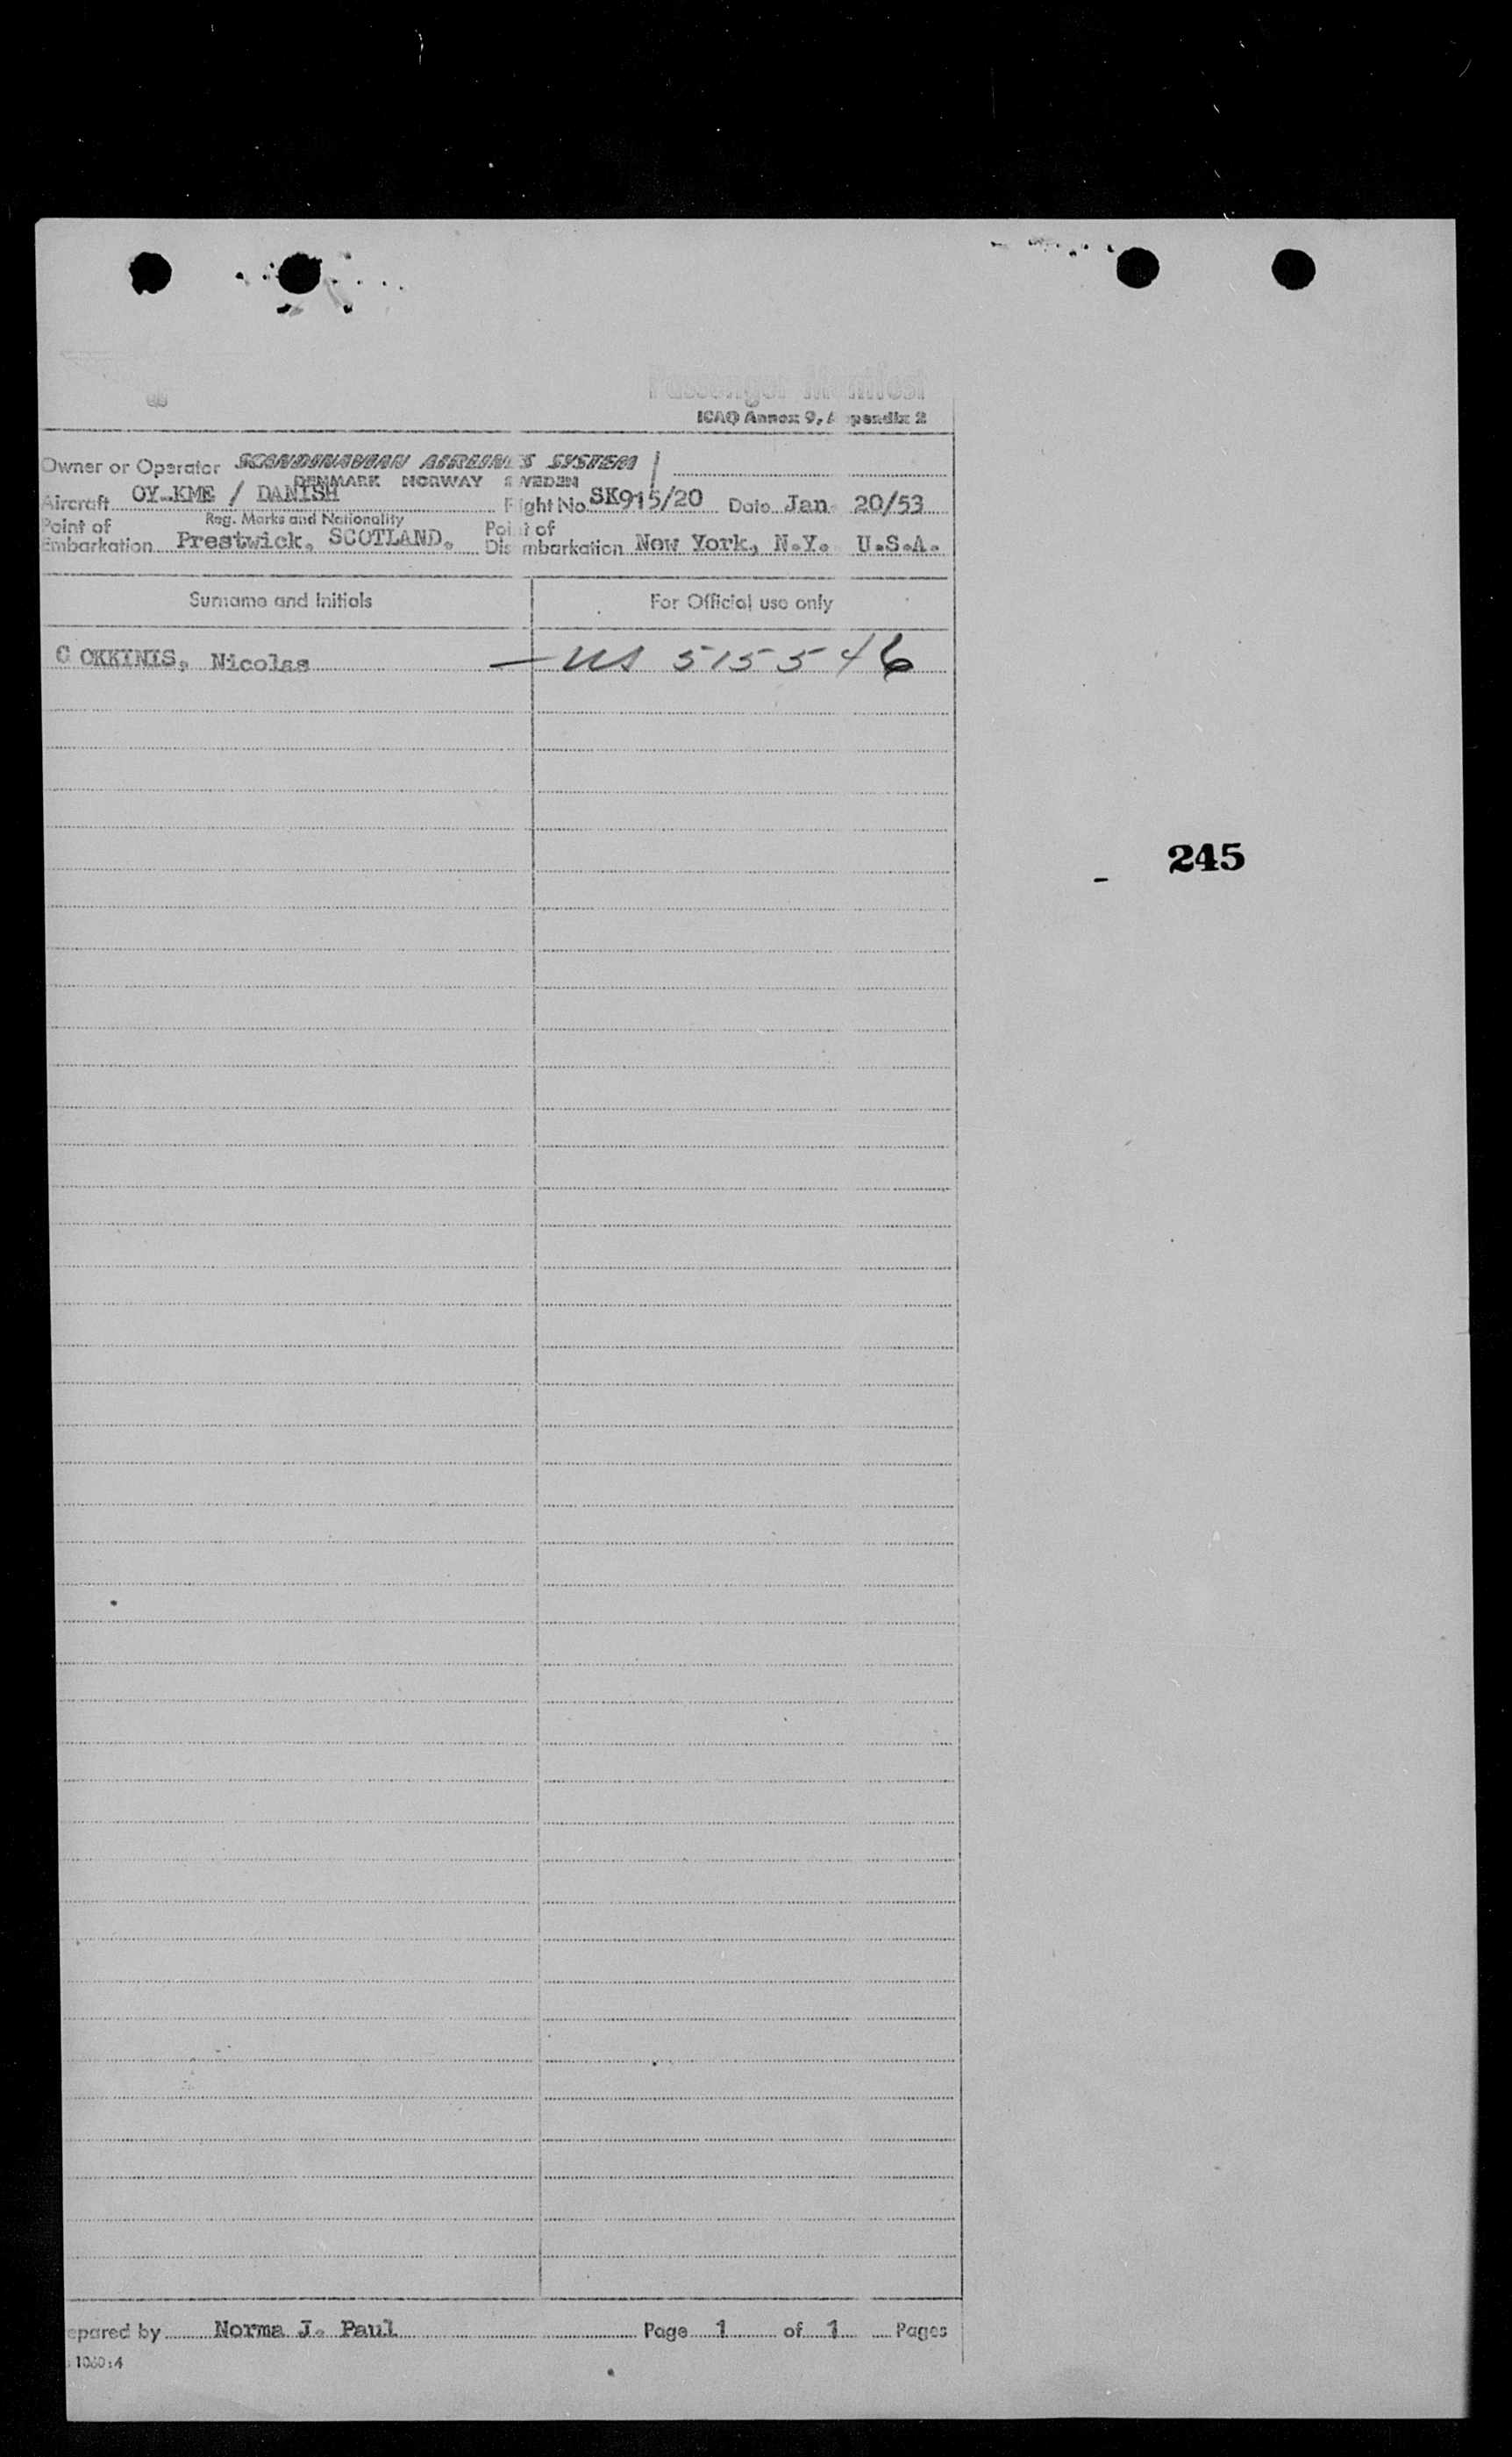 Passenger Manifest
ICAO Annex 9, Appendix 2
Owner or Operator SCANDINAVIAN AIRLINES SYSTEM
DENMARK NORWAY SWEDEN
Aircraft OY-KME / DANISH Flight No. SK915/20 Date Jan 20/53
Reg. Marks and Nationality
Point of Embarkation Prestwick, SCOTLAND. Point of Disembarkation New York, N.Y. U.S.A.
Surname and Initials For Official use only
C OKKINIS, Nicolas — US 515546
245
epared by Norma J. Paul Page 1 of 1 Pages